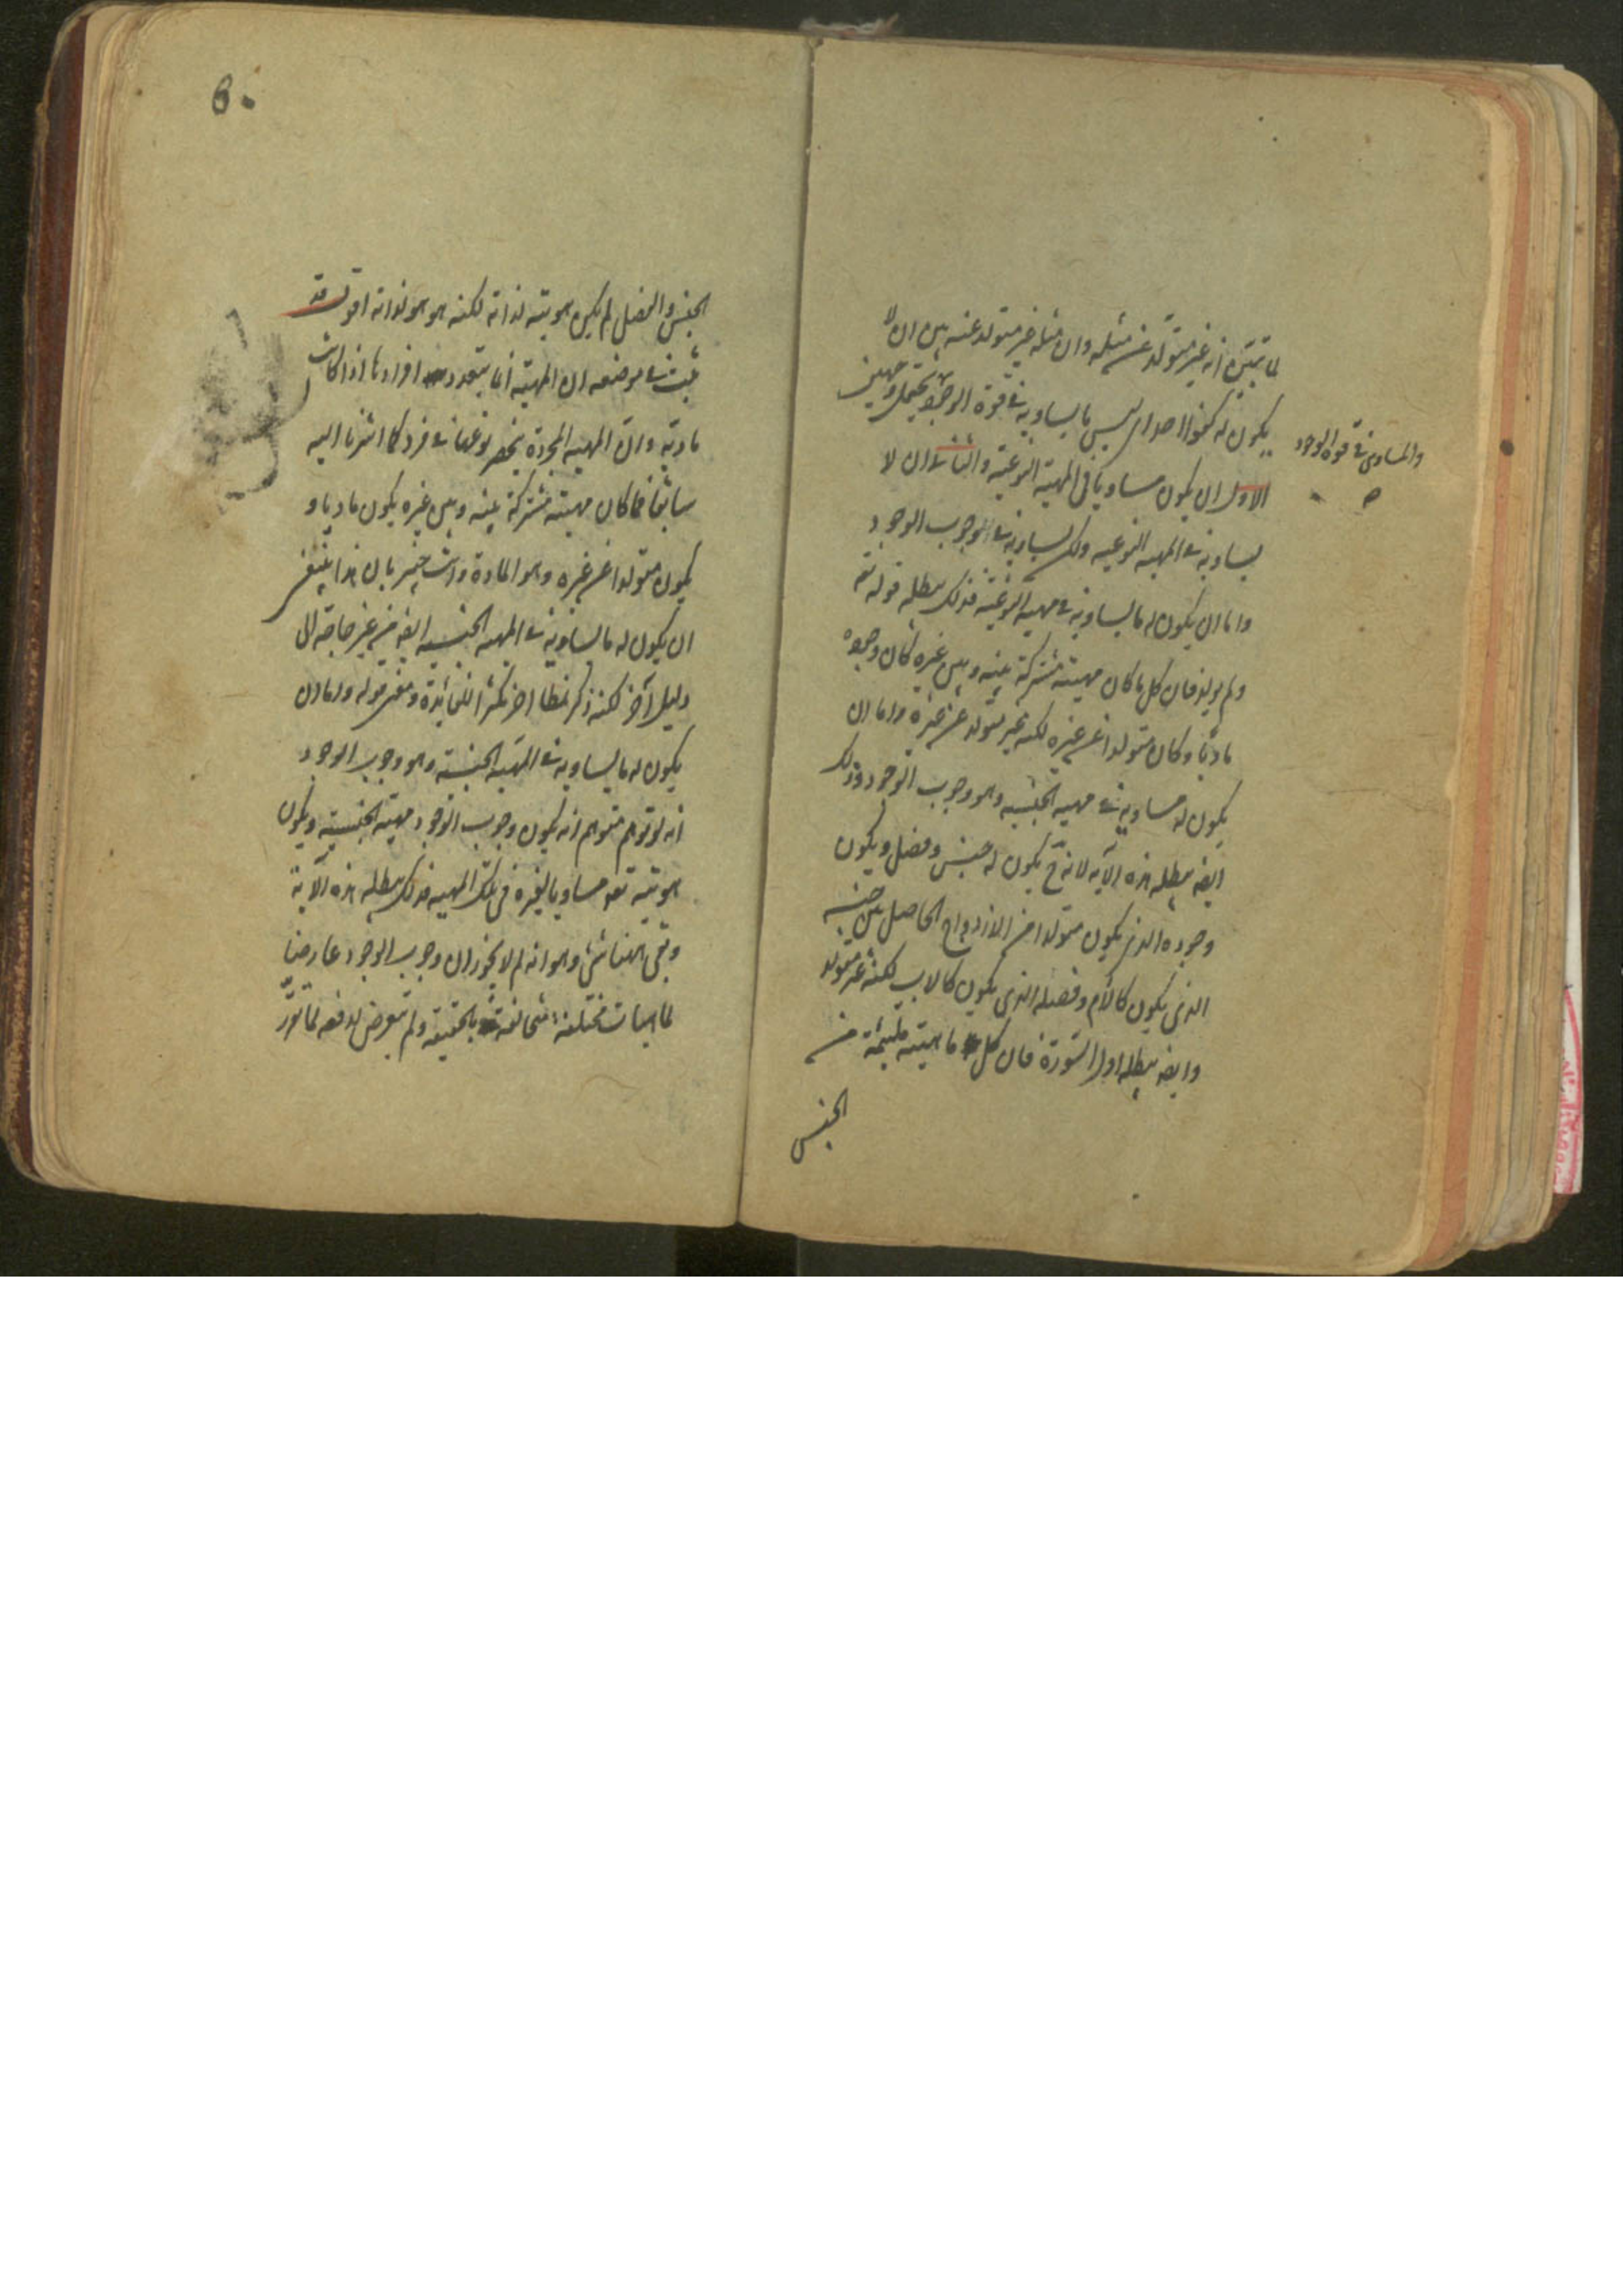 لما تبين انه غير متولد عن مثله وان مثله غير متولد عنه بين ان لا
يكون له كفوا احد اى ليس ما يساويه فى قوة الوجود يحتمل وجهين
والمساوى فى قوة الوجود
الاول ان يكون مساويا فى المهية النوعية والثانى ان لا
يساويه فى المهيه النوعيه ولكن يساويه فى الوجوب الوجود
واما ان يكون له ما يساويه فى مهيه النوعية فذلك يبطله قوله تعه
ولم يولد فان كل ما كان مهيته مشتركة بينه وبين غيره كان وجوده
ماديا وكان متولدا عن غيره لكنه غير متولد عن غيره واما ان
يكون له مساويه فى مهيه الجنسيه وهو وجوب الوجود وذلك
ايضه يبطله هذه الآيه لانه ح يكون له جنس وفصل ويكون
وجوده الذى يكون متولدا من الازدواج الحاصل بين جنسه
الذى يكون كالأم وفصله الذى يكون كالاب لكنه غير متولد
وايضه يبطله اول السورة فان كل ماهيته ملتئمة من
الجنس
60
الجنس والفصل لم يكن هويته لذاته لكنه هو هو لذاته اقول قد
ثبت فى موضعه ان المهية انما يتعدد افرادها اذا كانت
مادية وان المهيه المجردة ينحصر نوعها فى فرد كما اشرنا اليه
سابقا فما كان مهيته مشتركة بينه وبين غيره يكون ماديا و
يكون متولدا عن غيره وهو المادة وانت خبير بان هذا ينفى
ان يكون له ما يساويه فى المهيه الجنسيه ايضه من غير حاجة الى
دليل آخر لكنه ذكر نمطا اخر تكثيرا للفائدة ومعنى قوله واما ان
يكون له ما يساويه فى المهية الجنسية وهو وجوب الوجود
انه لو توهم متوهم انه يكون وجوب الوجود مهيته الجنسيته ويكون
هويته تعه مساويا لغيره فى تلك المهيه فذلك يبطله هذه الآية
وبقى ههنا شئ وهو انه لم لا يجوز ان وجوب الوجود عارضا
لماهيات مختلفة متخالفة بالحقيقة ولم يتعرض لدفعه لما تقرر